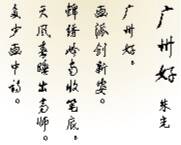 广州好
朱光
广州好。
画派创新姿。
锦绣岭南收笔底。
天风春睡出高师。
多少画中诗。